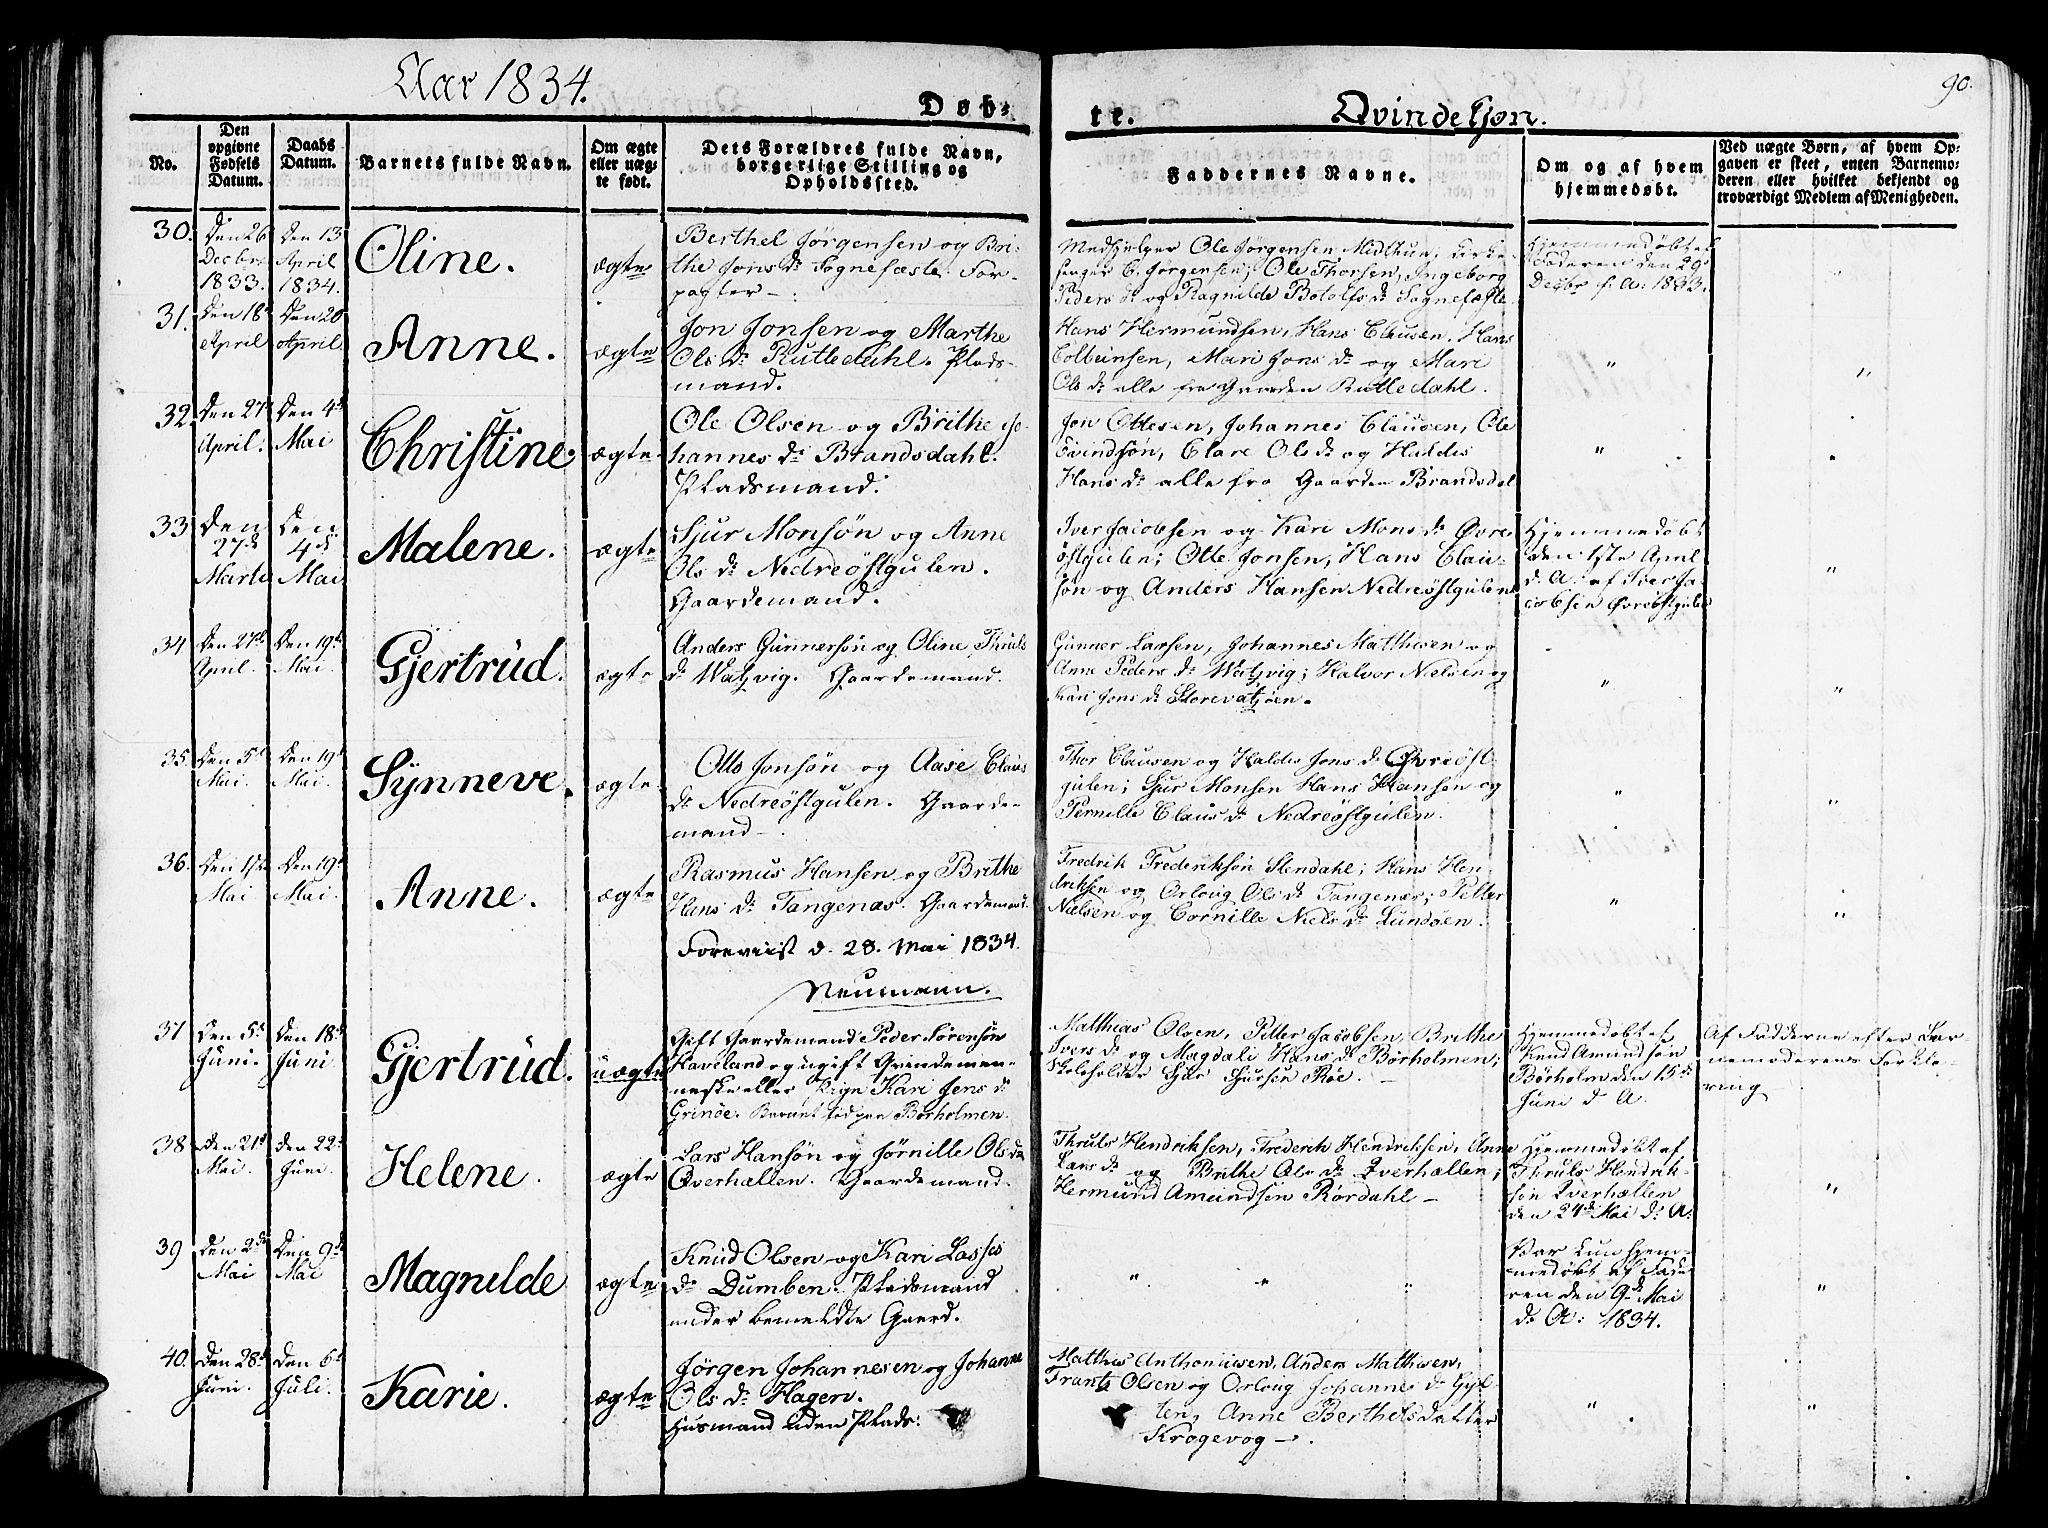 Aar 1834.
Døb-
te.
Qvindekjøn.
90.
No.
Den opgivne Fødsels Datum.
Daabs Datum.
Barnets fulde Navn.
Om ægte eller uægte født.
Dets Forældres fulde Navn, borgerlige Stilling og Opholdssted.
Faddernes Navne.
Om og af hvem hjemmedøbt.
Ved uægte Børn, af hvem Opgaven er skeet, enten Barnemoderen eller hvilket bekjendt og troværdigt Medlem af Menigheden.
30.
Den 26
Decbr
1833.
Den 13
April
1834.
Oline.
ægte
Berthel Jørgensen og Bri-
the Jons dr Sognefæste. For-
pagter
Medhjelper Ole Jørgensen Midthun, Kirke-
sanger E. Jørgensen, Ole Thorsen, Ingeborg
Peders dr og Ragnilde Botolfs dr Sognefæste
Hjemmedøbt af
Faderen den 29
Decbr f. A. 1833.
31.
Den 18
April
Den 20
April.
Anne.
ægte
Jon Jonsen og Marthe
Ols dr Rutledahl. Plads-
mand.
Hans Hermundsen, Hans Clausen, Hans
Colbeinsen, Mari Jons dr og Mari
Ols dr alle fra Gaarden Rutledahl.
32.
Den 27
April.
Den 4de
Mai
Christine.
ægte.
Ole Olsen og Brithe Jo-
hannes dr Brandsdahl.
Pladsmand.
Jon Ottesen, Johannes Clausen, Ole
Eivindsøn, Clare Ols dr og Haldis
Hans dr alle fra Gaarden Brandsdal
33
Den
27de
Marts
Den
4de
Mai
Malene.
ægte
Sjur Monsøn og Anne
Ols dr Nedreøstgulen.
Gaardemand.
Iver Jacobsen og Kari Mons dr Øvre-
østgulen; Otte Jonsen, Hans Clau-
søn og Anders Hansen Nedreøstgulen
Hjemmedøbt
den 1ste April
d. A. af Iver Ja-
cobsen Øvreøstgulen
34
Den 27de
April.
Den 19de
Mai.
Gjertrüd.
ægte
Anders Gunnersøn og Oline Thruls
dr Watzvig. Gaardemand.
Gunner Larsen, Johannes Matthisen og
Anne Peders dr Watzvig; Halvor Nielsen og
Kari Jons dr Storevatzøen.
35.
Den 5te
Mai.
Den 19de
Mai.
Synneve.
ægte.
Otto Jonsøn og Aase Claus
dr Nedreøstgulen. Gaarde-
mand
Thor Clausen og Haldis Jons dr Øvreøst-
gulen; Sjur Monsen Hans Hansen og
Pernille Claus dr Nedreøstgulen.
36.
Den 1ste
Mai
Den 19de
Mai.
Anne.
ægte
Rasmus Hansen og Brithe
Hans dr Tangenæs. Gaardemand.
Foreviist d. 28. Mai 1834.
Neumann.
Fredrik Frederiksøn Stendahl; Hans Hen-
driksen og Orloug Ols dr Tangenæs; Petter
Nielsen og Cornille Niels dr Lundøen.
37
Den 5te
Juni.
Den 18de
Juni
Gjertrüd.
uægte
Gift Gaardemand Peder Sørensøn
Haveland og ugift Qvindemen-
neske eller Pige Kari Jens dr
Grinøe. Barnet født paa Børholmen.
Matthias Olsen, Petter Jacobsen, Brithe
Ivers dr og Magdali Hans dr Børholmen;
Skoleholder Sjur Sjursen Røe.
Hjemmedøbt af
Knud Amundsøn
Børholm den 15de
Juni d. A.
Af Fadderne efter Bar-
nemoderens Forkla-
ring
38
Den 21de
Mai.
Den 22de
Juni.
Helene.
ægte
Lars Hansøn og Jørnille Ols dr
Qverhællen. Gaardemand.
Thruls Hendriksen, Frederik Hendriksen, Anne
Lars dr og Brithe Ols dr Qverhællen;
Hermund Amundsøn Rørdahl
Hjemmedøbt af
Thruls Hendrik-
søn Qverhællen
den 24de Mai d. A.
39
Den 2de
Mai
Den 9de
Mai
Magnilde
ægte
Knud Olsen og Kari Lasses
dr Dumben. Pladsmand
under bemeldte Gaard.
Var kun hjem-
medøbt af Fade-
ren den 9de Mai
d. A. 1834.
40.
Den 28de
Juni.
Den 6te
Juli.
Karie.
ægte
Jørgen Johannesen og Johanne
Ols dr Hagen.
Husmand uden Plads.
Matthis Anthoniusen, Anders Mathisen,
Frants Olsen og Orloug Johannes dr Gyl-
ten, Anne Berthelsdatter
Krogevog